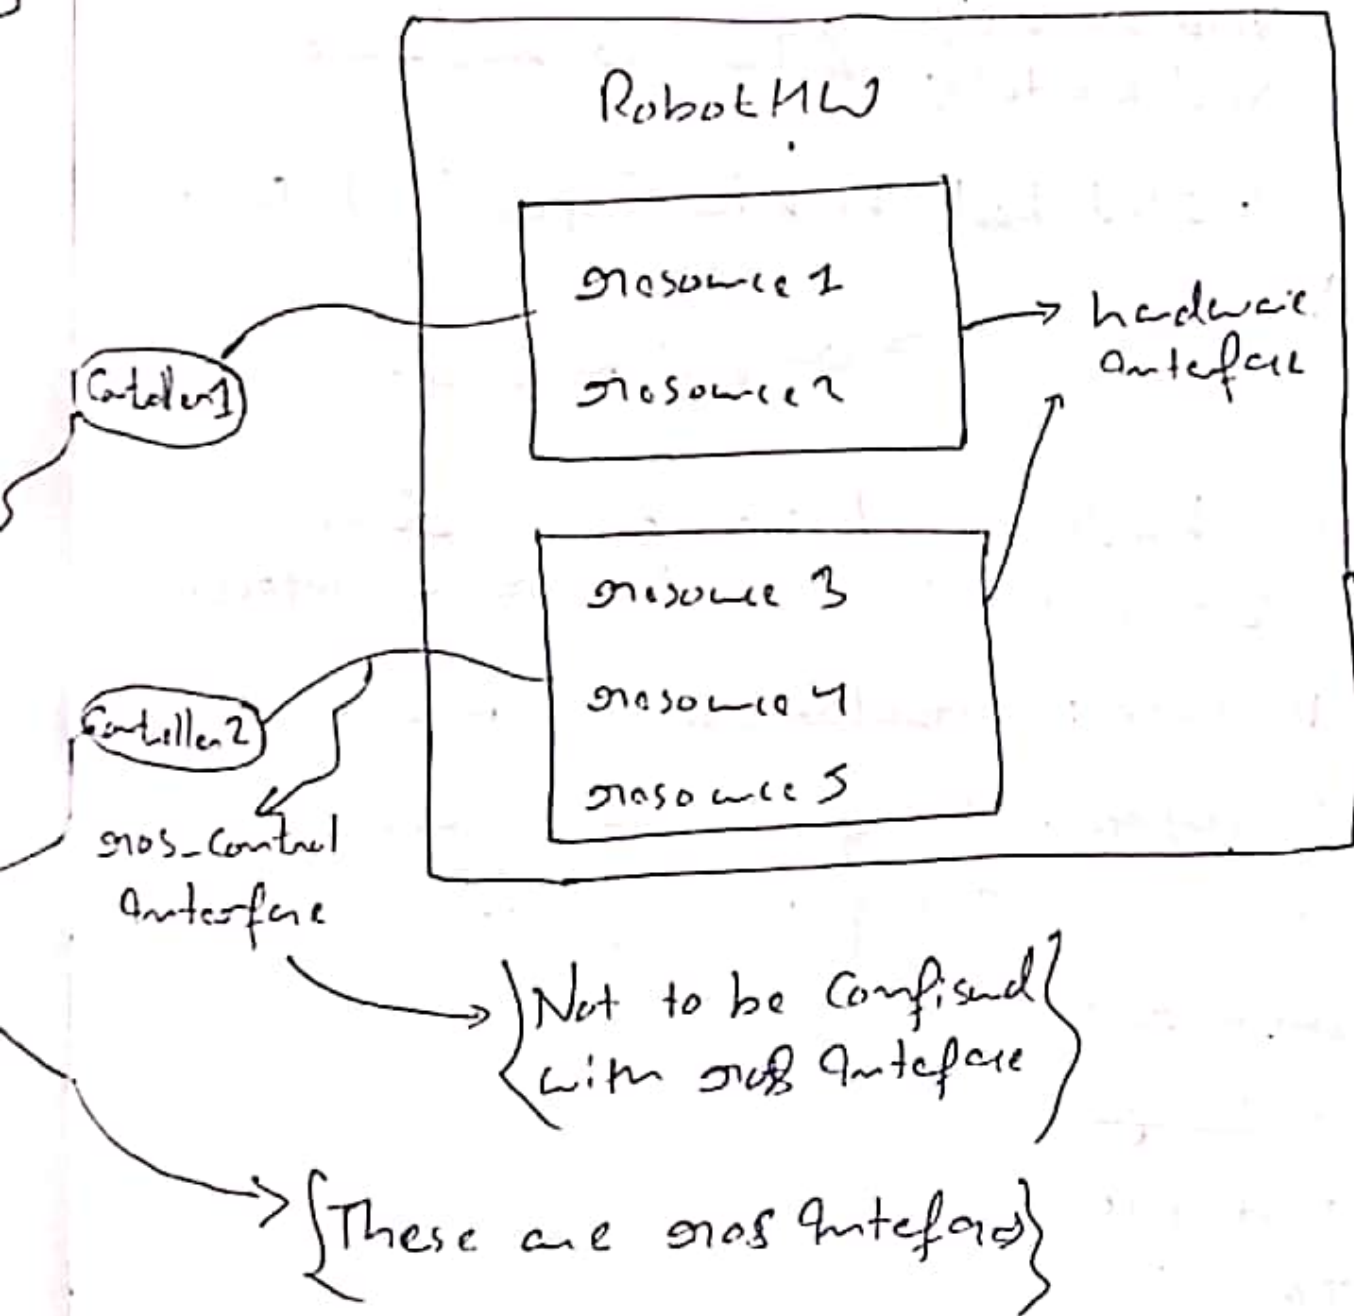 RobotHW
resource 1
resource 2
hardware
interface
Controller 1
resource 3
resource 4
resource 5
Controller 2
ros_control
interface
Not to be confused
with ros interface
These are ros interfaces